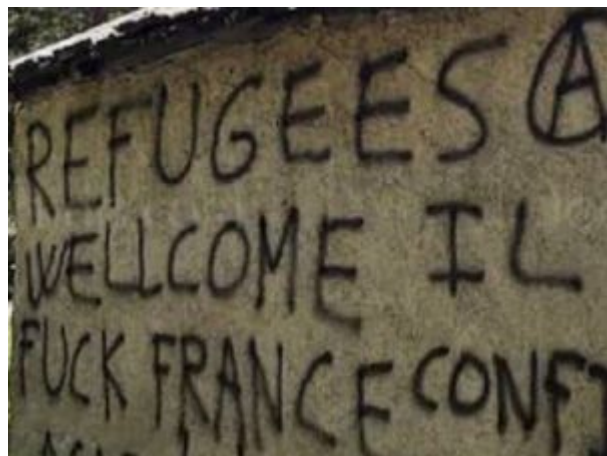 REFUGEES Ⓐ
WELLCOME IL
FUCK FRANCE CONFI